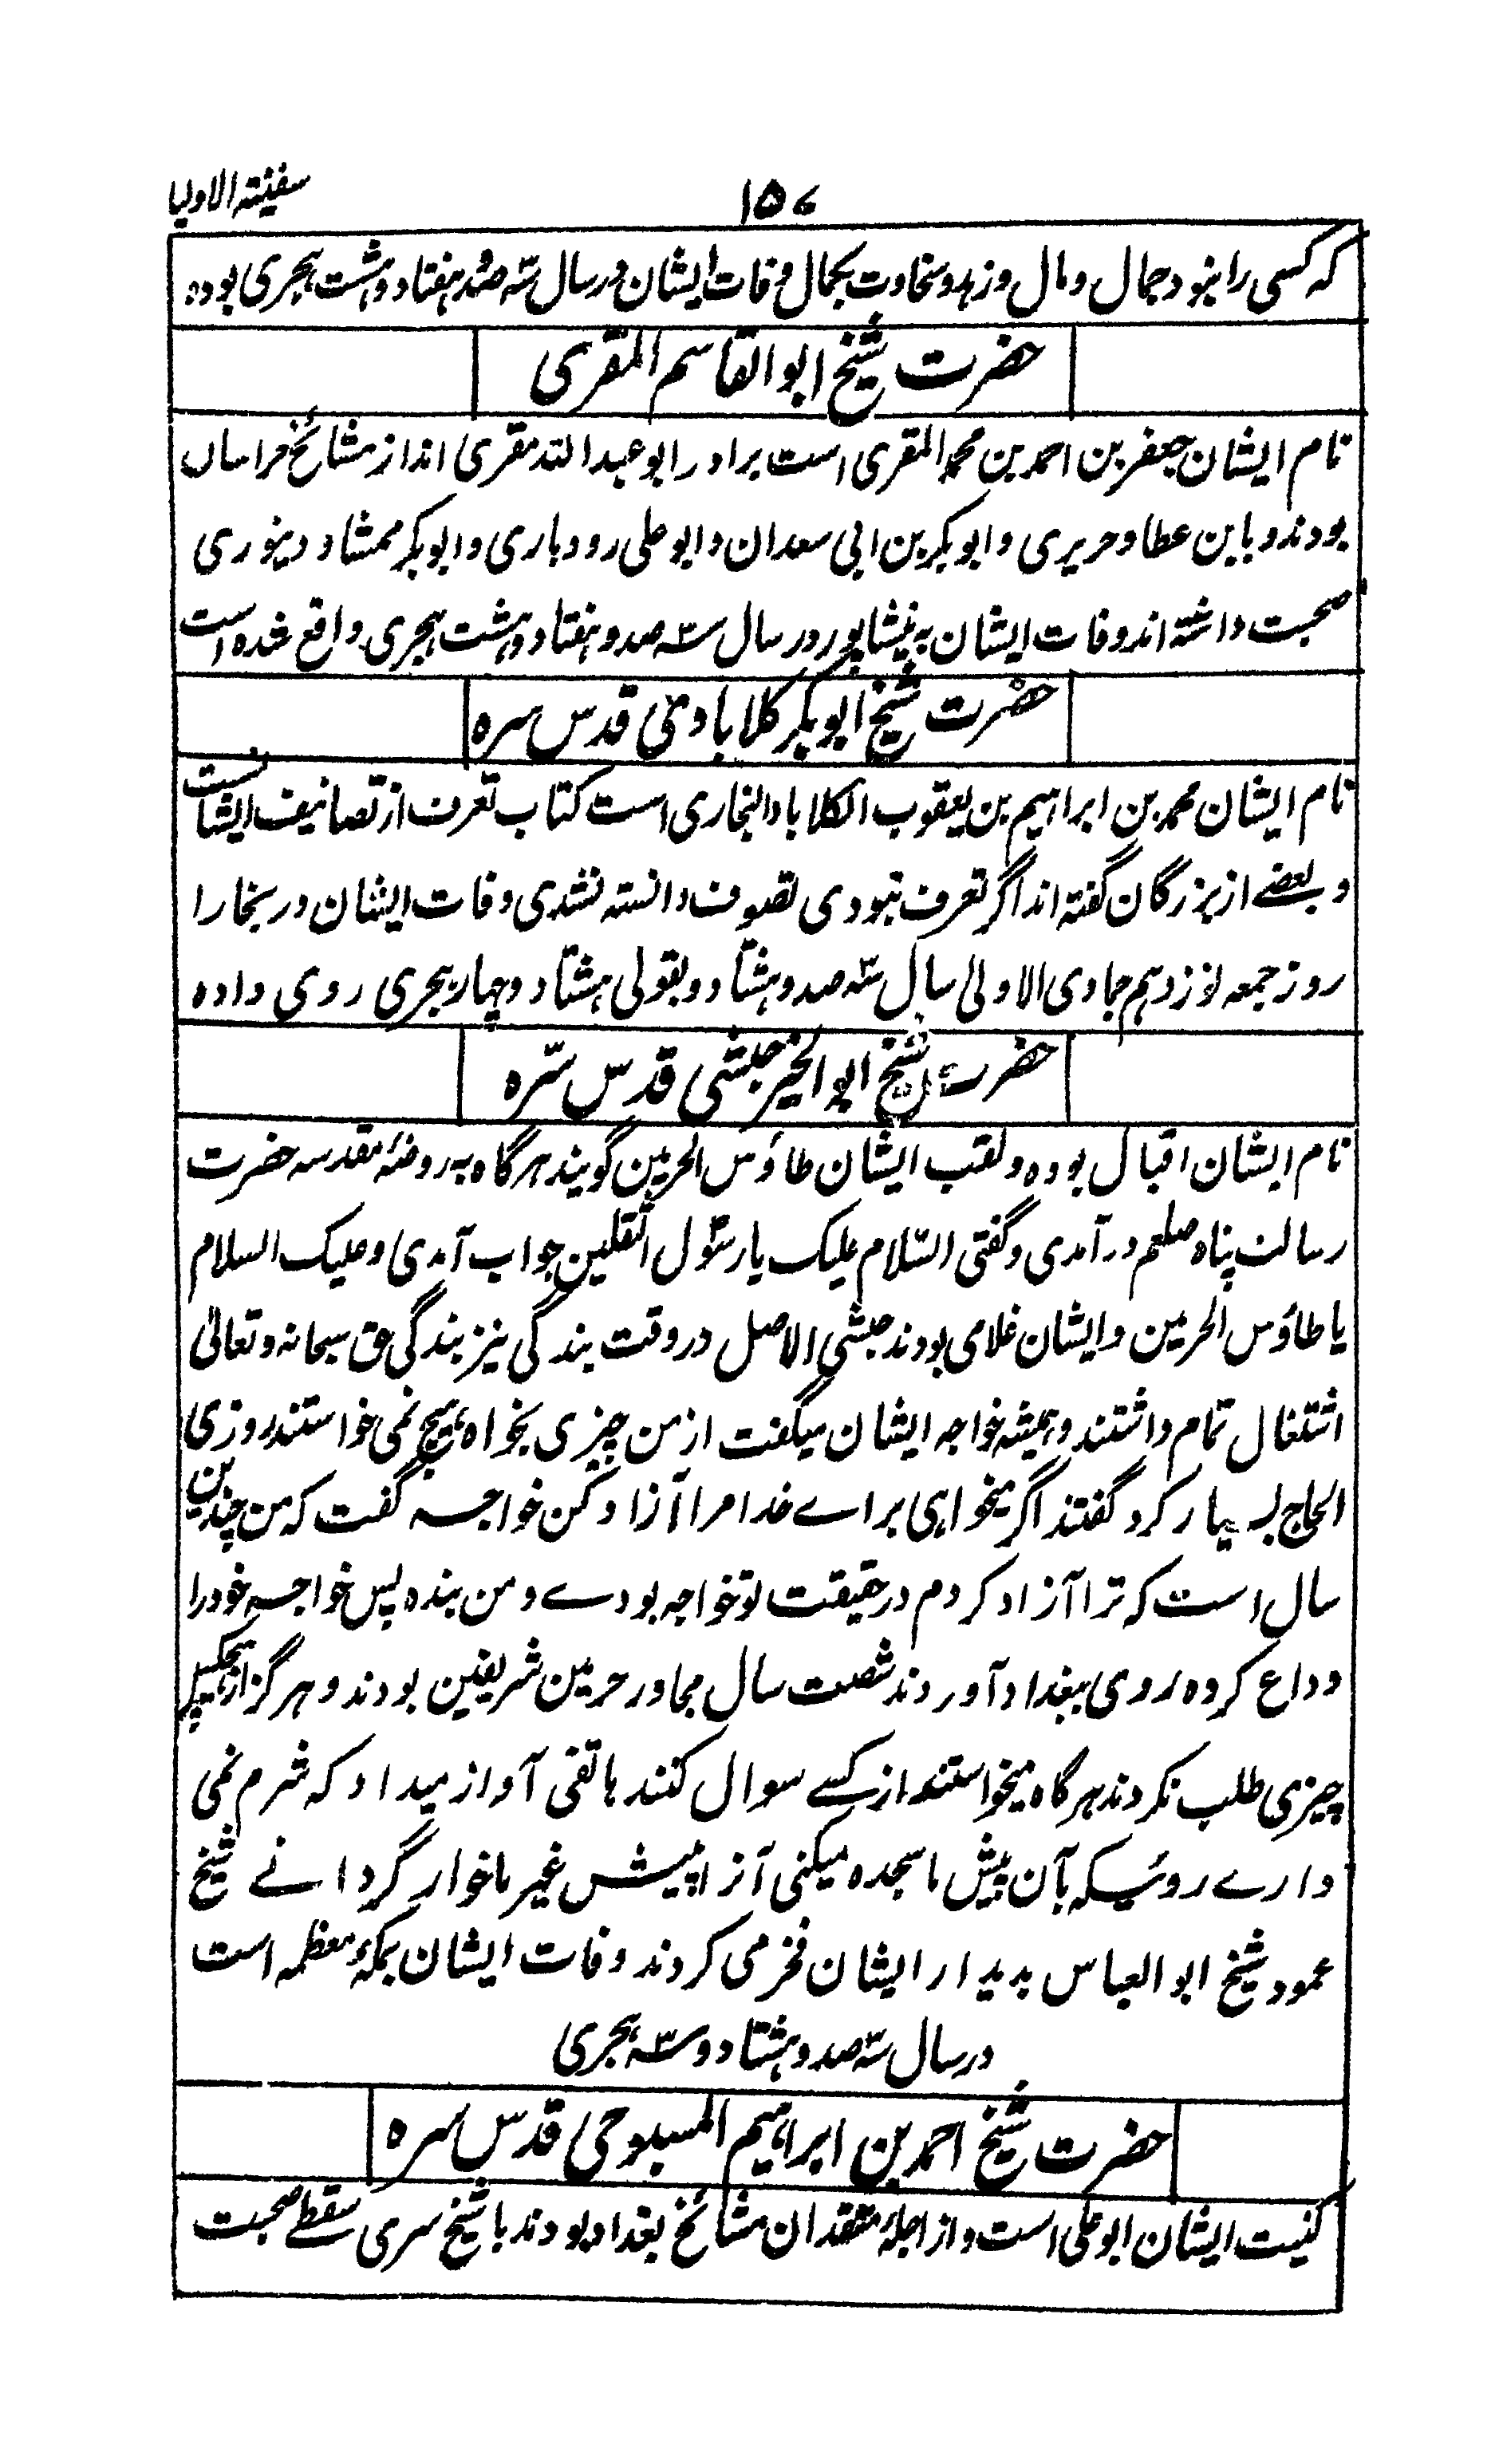 سفینة الاولیا
۱۵۷
که کسی را نبود جمال و مال و زهد و سخاوت بکمال وفات ایشان در سال سه صد و هفتاد و هشت هجری بوده
حضرت شیخ ابو القاسم المقری
نام ایشان جعفر بن احمد بن محمد المقری است برادر ابو عبد الله مقری اند از مشائخ خراسان
بودند و با بن عطا و حریری و ابوبکر بن ابی سعدان و ابو علی رودباری و ابوبکر ممشاد دینوری
صحبت داشته اند وفات ایشان به نیشاپور در سال سه صد و هفتاد و هشت هجری واقع شده است
حضرت شیخ ابوبکر کلابادی قدس سره
نام ایشان محمد بن ابراهیم بن یعقوب الکلاباد البخاری است کتاب تعرف از تصانیف ایشانست
و بعضے از بزرگان گفته اند اگر تعرف نبودی تصوف دانسته نشدی وفات ایشان در بخارا
روز جمعه نوزدهم جمادی الاولی سال سه صد و هشتاد و بقولی هشتاد و چهار هجری روی داده
حضرت شیخ ابو الخیر حبشی قدس سّره
نام ایشان اقبال بوده و لقب ایشان طاؤس الحرمین گویند هرگاه به روضهٔ مقدسه حضرت
رسالت پناه صلعم در آمدی و گفتی السّلام علیک یا رسول الثقلین جواب آمدی و علیک السلام
یا طاؤس الحرمین و ایشان غلامی بودند حبشی الاصل در وقت بندگی نیز بندگی حق سبحانه و تعالیٰ
اشتغال تمام داشتند و همیشه خواجه ایشان میگفت از من چیزی بخواه هیچ نمی خواستند روزی
الحاح بسیار کرد گفتند اگر میخواهی براے خدا مرا آزاد کن خواجه گفت که من چندین
سال است که ترا آزاد کردم در حقیقت تو خواجه بودے و من بنده پس خواجه خود را
وداع کرده روی ببغداد آوردند شصت سال مجاور حرمین شریفین بودند و هرگز از هیچکس
چیزی طلب نکردند هرگاه میخواستند از کسے سوال کنند هاتفی آواز میداد که شرم نمی
دارے روئیکه بآن پیش ما سجده میکنی آنرا پیش غیر ما خوار گردانے شیخ
عمود شیخ ابو العباس بدیدار ایشان فخر می کردند وفات ایشان بمکهٔ معظمه است
در سال سه صد و هشتاد و سه هجری
حضرت شیخ احمد بن ابراهیم المسبوحی قدس سره
کنیت ایشان ابو علی است و از اجلهٔ متقدمان مشائخ بغداد بودند با شیخ سری سقطے صحبت